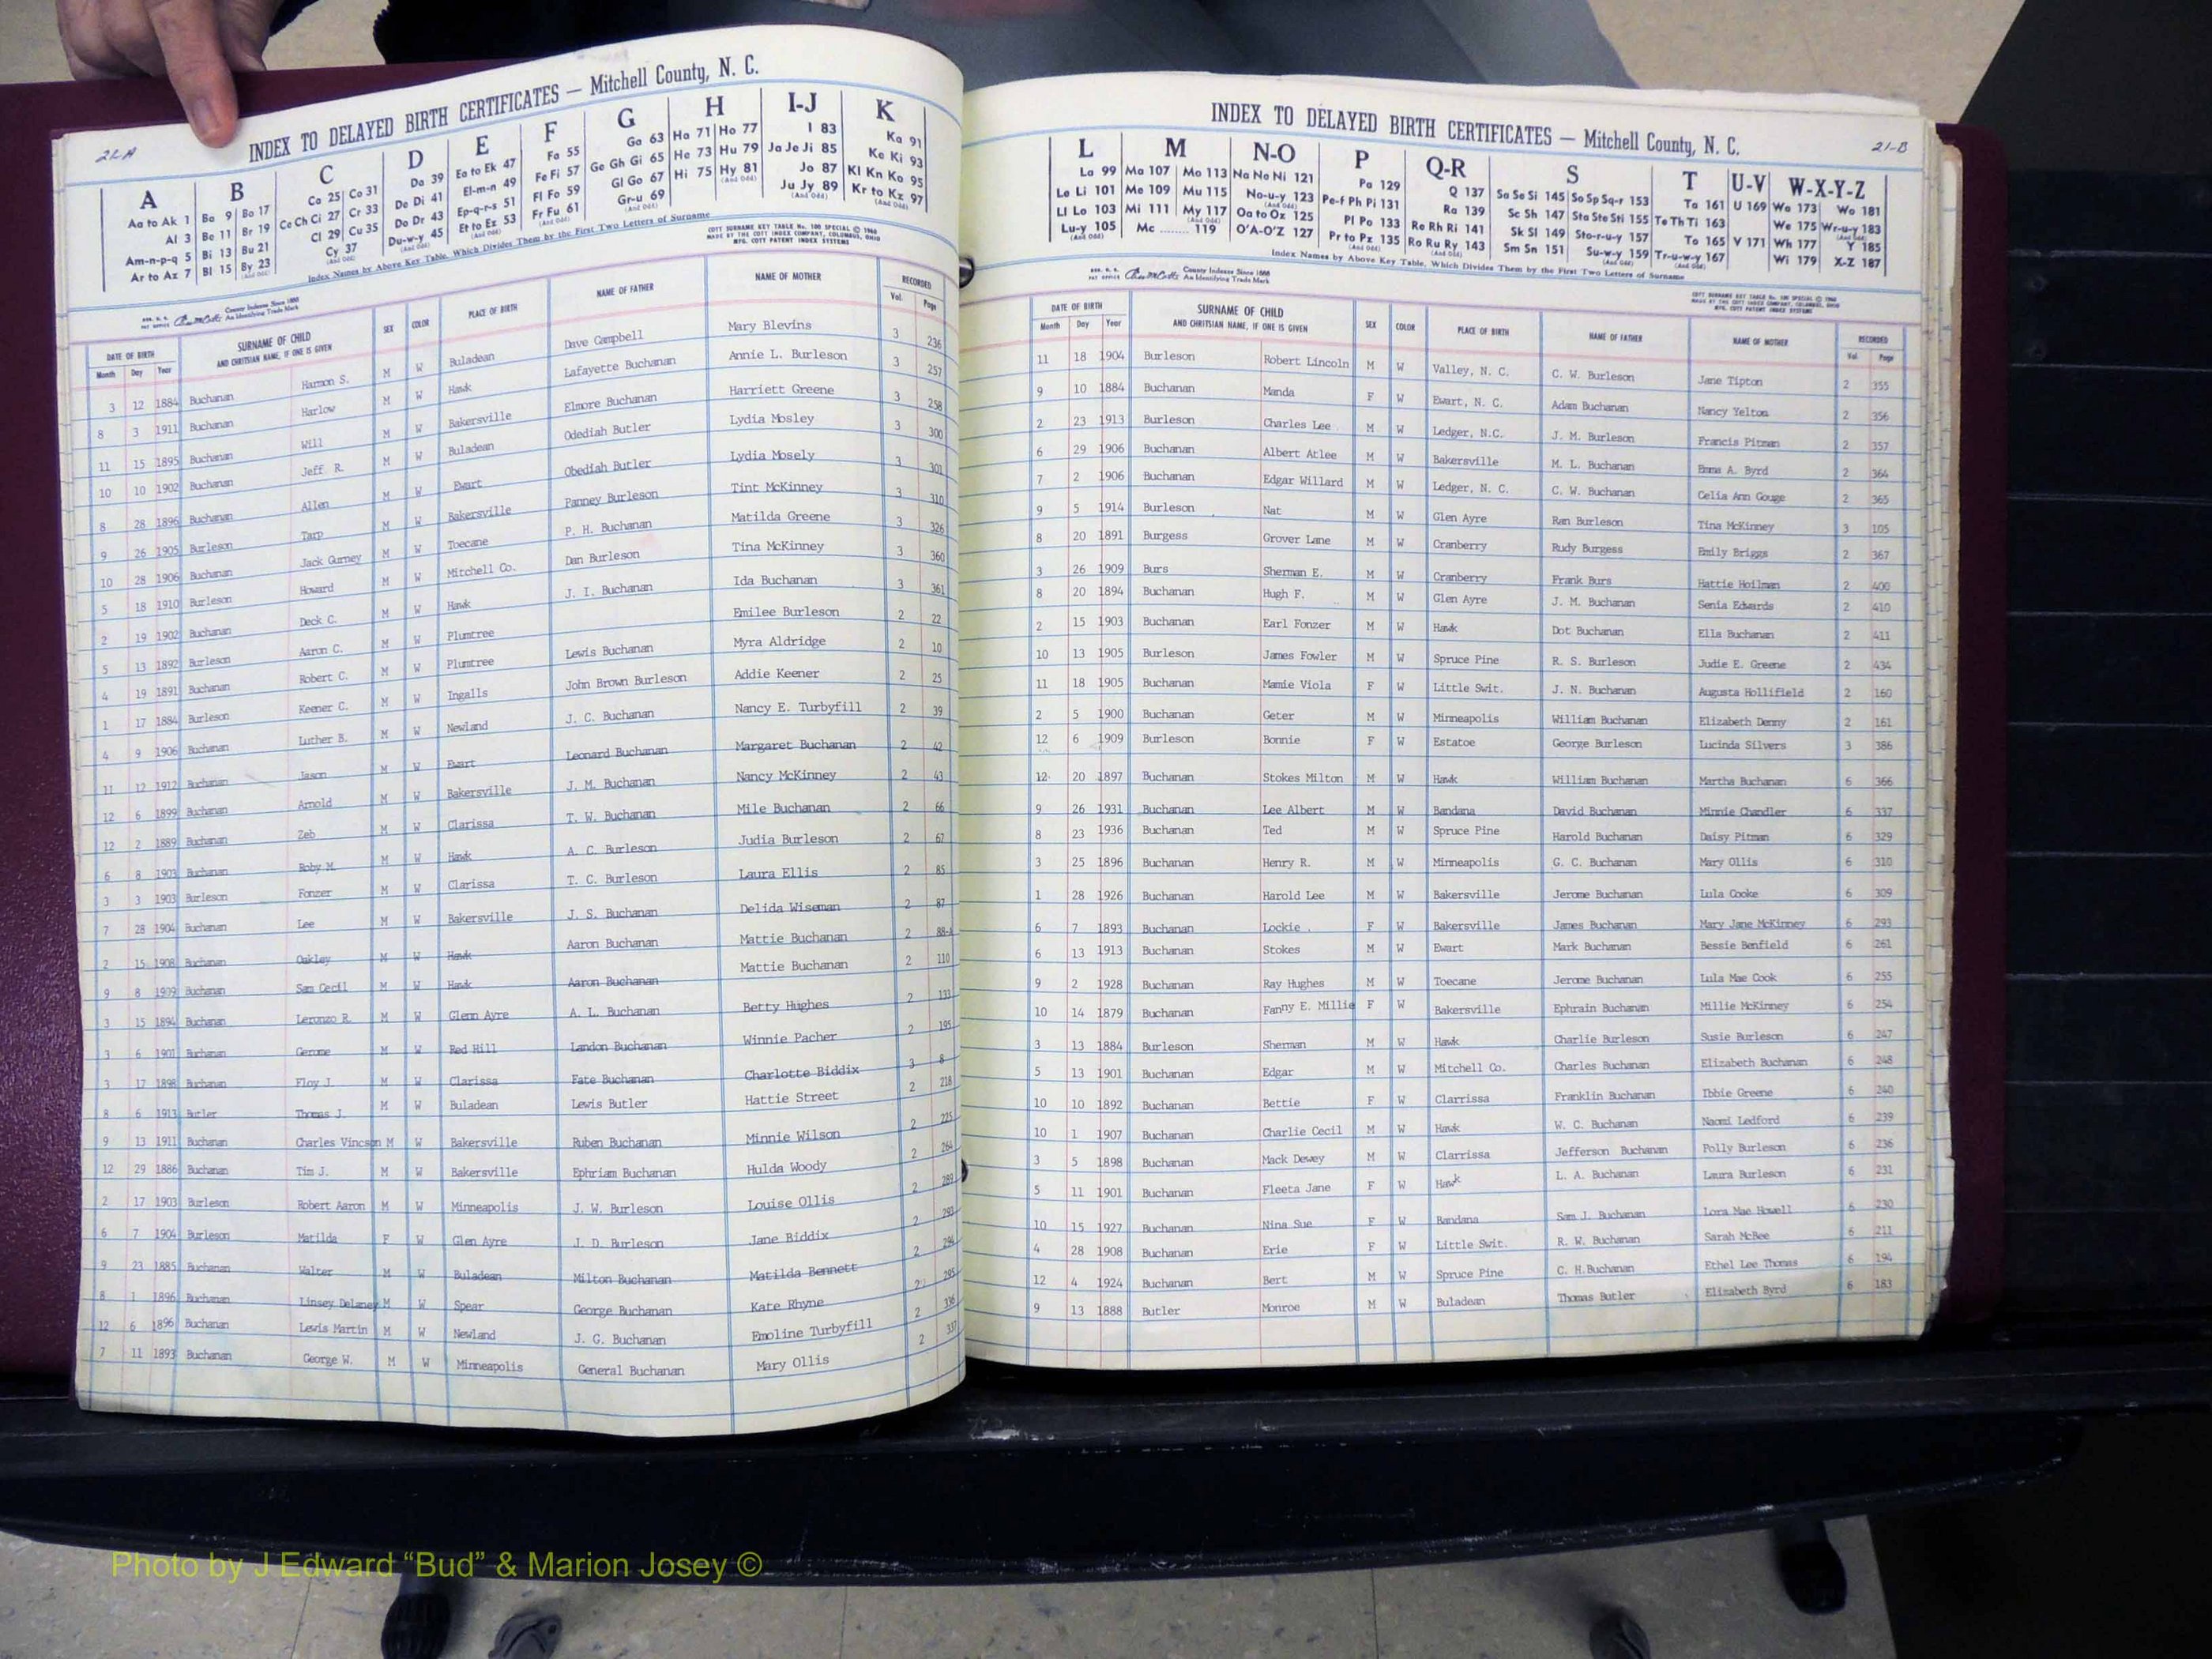 INDEX TO DELAYED BIRTH CERTIFICATES — Mitchell County, N. C.
A B C D E F G H I-J K
Aa to Ak 1 Ba 9 Bo 17 Ca 25 Co 31 Da 39 Ea to Ek 47 Fa 55 Ga 63 Ha 71 Ho 77 I 83 Ka 91
Al 3 Be 11 Br 19 Ce Ch Ci 27 Cr 33 De Di 41 El-m-n 49 Fe Fi 57 Ge Gh Gi 65 He 73 Hu 79 Ja Je Ji 85 Ke Ki 93
Am-n-p-q 5 Bi 13 Bu 21 Cl 29 Cu 35 Do Dr 43 Ep-q-r-s 51 Fl Fo 59 Gl Go 67 Hi 75 Hy 81 Jo 87 Kl Kn Ko 95
Ar to Az 7 Bl 15 By 23 Cy 37 Du-w-y 45 Et to Ez 53 Fr Fu 61 Gr-u 69 Ju Jy 89 Kr to Kz 97
Index Names by Above Key Table, Which Divides Them by the First Two Letters of Surname
COTT SURNAME KEY TABLE No. 100 SPECIAL © 1968
MADE BY THE COTT INDEX COMPANY, COLUMBUS, OHIO
MFG. COTT PATENT INDEX SYSTEMS
County Indexes Since 1888
An Identifying Trade Mark
DATE OF BIRTH SURNAME OF CHILD SEX COLOR PLACE OF BIRTH NAME OF FATHER NAME OF MOTHER RECORDED
Month Day Year AND CHRITSIAN NAME, IF ONE IS GIVEN Vol. Page
3 12 1884 Buchanan Harmon S. M W Buladean Dave Campbell Mary Blevins 3 236
8 3 1911 Buchanan Harlow M W Hawk Lafayette Buchanan Annie L. Burleson 3 257
11 15 1895 Buchanan Will M W Bakersville Elmore Buchanan Harriett Greene 3 258
10 10 1902 Buchanan Jeff R. M W Buladean Odediah Butler Lydia Mosley 3 300
8 28 1896 Buchanan Allen M W Ewart Obediah Butler Lydia Mosely 3 301
9 26 1905 Burleson Tarp M W Bakersville Panney Burleson Tint McKinney 3 310
10 28 1906 Buchanan Jack Gurney M W Toecane P. H. Buchanan Matilda Greene 3 326
5 18 1910 Burleson Howard M W Mitchell Co. Dan Burleson Tina McKinney 3 360
2 19 1902 Buchanan Deck C. M W Hawk J. I. Buchanan Ida Buchanan 3 361
5 13 1892 Burleson Aaron C. M W Plumtree Emilee Burleson 2 22
4 19 1891 Buchanan Robert C. M W Plumtree Lewis Buchanan Myra Aldridge 2 10
1 17 1884 Burleson Keener C. M W Ingalls John Brown Burleson Addie Keener 2 25
4 9 1906 Buchanan Luther B. M W Newland J. C. Buchanan Nancy E. Turbyfill 2 39
11 12 1912 Buchanan Jason M W Ewart Leonard Buchanan Margaret Buchanan 2 42
12 6 1899 Buchanan Arnold M W Bakersville J. M. Buchanan Nancy McKinney 2 43
12 2 1889 Buchanan Zeb M W Clarissa T. W. Buchanan Mile Buchanan 2 66
6 8 1903 Buchanan Roby M. M W Hawk A. C. Burleson Judia Burleson 2 67
3 3 1903 Burleson Fonzer M W Clarissa T. C. Burleson Laura Ellis 2 85
7 28 1904 Buchanan Lee M W Bakersville J. S. Buchanan Delida Wiseman 2 87
2 15 1908 Buchanan Oakley M W Hawk Aaron Buchanan Mattie Buchanan 2 88-A
9 8 1909 Buchanan Sam Cecil M W Hawk Aaron Buchanan Mattie Buchanan 2 110
3 15 1894 Buchanan Lerunzo R. M W Glenn Ayre A. L. Buchanan Betty Hughes 2 133
3 6 1901 Buchanan Gerome M W Red Hill Landon Buchanan Winnie Pacher 2 195
3 17 1898 Buchanan Floy J. M W Clarissa Fate Buchanan Charlotte Biddix 3 8
8 6 1913 Butler Thomas J. M W Buladean Lewis Butler Hattie Street 2 218
9 13 1911 Buchanan Charles Vincson M W Bakersville Ruben Buchanan Minnie Wilson 2 225
12 29 1886 Buchanan Tim J. M W Bakersville Ephriam Buchanan Hulda Woody 2 264
2 17 1903 Burleson Robert Aaron M W Minneapolis J. W. Burleson Louise Ollis 2 289
6 7 1904 Burleson Matilda F W Glen Ayre J. D. Burleson Jane Biddix 2 293
9 23 1885 Buchanan Walter M W Buladean Milton Buchanan Matilda Bennett 2 294
8 1 1896 Buchanan Linsey Delaney M W Spear George Buchanan Kate Rhyne 2 295
12 6 1896 Buchanan Lewis Martin M W Newland J. G. Buchanan Emoline Turbyfill 2 336
7 11 1893 Buchanan George W. M W Minneapolis General Buchanan Mary Ollis 2 337
INDEX TO DELAYED BIRTH CERTIFICATES — Mitchell County, N. C. 21-B
L M N-O P Q-R S T U-V W-X-Y-Z
La 99 Ma 107 Mo 113 Na Ne Ni 121 Pa 129 Q 137 Sa Se Si 145 So Sp Sq-r 153 Ta 161 U 169 Wa 173 Wo 181
Le Li 101 Me 109 Mu 115 No-u-y 123 Pe-f Ph Pi 131 Ra 139 Sc Sh 147 Sta Ste Sti 155 Te Th Ti 163 We 175 Wr-u-y 183
Ll Lo 103 Mi 111 My 117 Oa to Oz 125 Pl Po 133 Re Rh Ri 141 Sk Sl 149 Sto-r-u-y 157 To 165 V 171 Wh 177 Y 185
Lu-y 105 Mc ........ 119 O'A-O'Z 127 Pr to Pz 135 Ro Ru Ry 143 Sm Sn 151 Su-w-y 159 Tr-u-w-y 167 Wi 179 X-Z 187
Index Names by Above Key Table, Which Divides Them by the First Two Letters of Surname
County Indexes Since 1888
An Identifying Trade Mark
COTT SURNAME KEY TABLE No. 100 SPECIAL © 1968
MADE BY THE COTT INDEX COMPANY, COLUMBUS, OHIO
MFG. COTT PATENT INDEX SYSTEMS
DATE OF BIRTH SURNAME OF CHILD SEX COLOR PLACE OF BIRTH NAME OF FATHER NAME OF MOTHER RECORDED
Month Day Year AND CHRITSIAN NAME, IF ONE IS GIVEN Vol. Page
11 18 1904 Burleson Robert Lincoln M W Valley, N. C. C. W. Burleson Jane Tipton 2 355
9 10 1884 Buchanan Manda F W Ewart, N. C. Adam Buchanan Nancy Yelton 2 356
2 23 1913 Burleson Charles Lee M W Ledger, N.C. J. M. Burleson Francis Pitman 2 357
6 29 1906 Buchanan Albert Atlee M W Bakersville M. L. Buchanan Emma A. Byrd 2 364
7 2 1906 Buchanan Edgar Willard M W Ledger, N. C. C. W. Buchanan Celia Ann Gouge 2 365
9 5 1914 Burleson Nat M W Glen Ayre Ran Burleson Tina McKinney 3 105
8 20 1891 Burgess Grover Lane M W Cranberry Rudy Burgess Emily Briggs 2 367
3 26 1909 Burs Sherman E. M W Cranberry Frank Burs Hattie Hoilman 2 400
8 20 1894 Buchanan Hugh F. M W Glen Ayre J. M. Buchanan Senia Edwards 2 410
2 15 1903 Buchanan Earl Fonzer M W Hawk Dot Buchanan Ella Buchanan 2 411
10 13 1905 Burleson James Fowler M W Spruce Pine R. S. Burleson Judie E. Greene 2 434
11 18 1905 Buchanan Mamie Viola F W Little Swit. J. N. Buchanan Augusta Hollifield 2 160
2 5 1900 Buchanan Geter M W Minneapolis William Buchanan Elizabeth Denny 2 161
12 6 1909 Burleson Bonnie F W Estatoe George Burleson Lucinda Silvers 3 386
12 20 1897 Buchanan Stokes Milton M W Hawk William Buchanan Martha Buchanan 6 366
9 26 1931 Buchanan Lee Albert M W Bandana David Buchanan Minnie Chandler 6 337
8 23 1936 Buchanan Ted M W Spruce Pine Harold Buchanan Daisy Pitman 6 329
3 25 1896 Buchanan Henry R. M W Minneapolis G. C. Buchanan Mary Ollis 6 310
1 28 1926 Buchanan Harold Lee M W Bakersville Jerome Buchanan Lula Cooke 6 309
6 7 1893 Buchanan Lockie . F W Bakersville James Buchanan Mary Jane McKinney 6 293
6 13 1913 Buchanan Stokes M W Ewart Mark Buchanan Bessie Benfield 6 261
9 2 1928 Buchanan Ray Hughes M W Toecane Jerome Buchanan Lula Mae Cook 6 255
10 14 1879 Buchanan Fanny E. Millie F W Bakersville Ephrain Buchanan Millie McKinney 6 254
3 13 1884 Burleson Sherman M W Hawk Charlie Burleson Susie Burleson 6 247
5 13 1901 Buchanan Edgar M W Mitchell Co. Charles Buchanan Elizabeth Buchanan 6 248
10 10 1892 Buchanan Bettie F W Clarrissa Franklin Buchanan Ibbie Greene 6 240
10 1 1907 Buchanan Charlie Cecil M W Hawk W. C. Buchanan Naomi Ledford 6 239
3 5 1898 Buchanan Mack Dewey M W Clarrissa Jefferson Buchanan Polly Burleson 6 236
5 11 1901 Buchanan Fleeta Jane F W Hawk L. A. Buchanan Laura Burleson 6 231
10 15 1927 Buchanan Nina Sue F W Bandana Sam J. Buchanan Lora Mae Howell 6 230
4 28 1908 Buchanan Erie F W Little Swit. R. W. Buchanan Sarah McBee 6 211
12 4 1924 Buchanan Bert M W Spruce Pine C. H.Buchanan Ethel Lee Thomas 6 194
9 13 1888 Butler Monroe M W Buladean Thomas Butler Elizabeth Byrd 6 183
Photo by J Edward “Bud” & Marion Josey ©